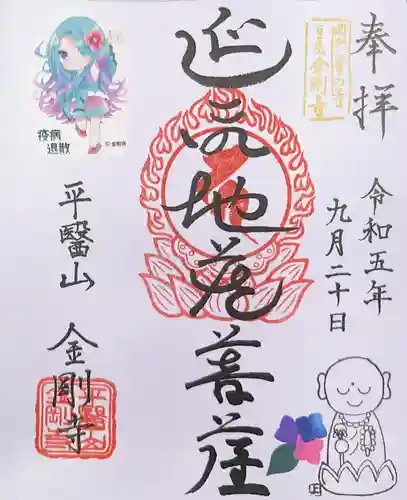 奉拝
令和五年
九月二十日
延命地蔵菩薩
疫病
退散
© 金剛寺
平醫山 金剛寺